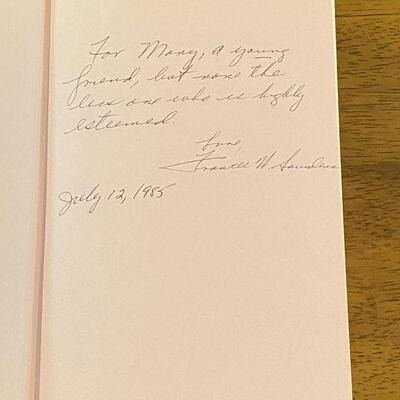 For Mary, a young
friend, but none the
less one who is highly
esteemed.
Love,
Frances W. Saunders
July 12, 1985